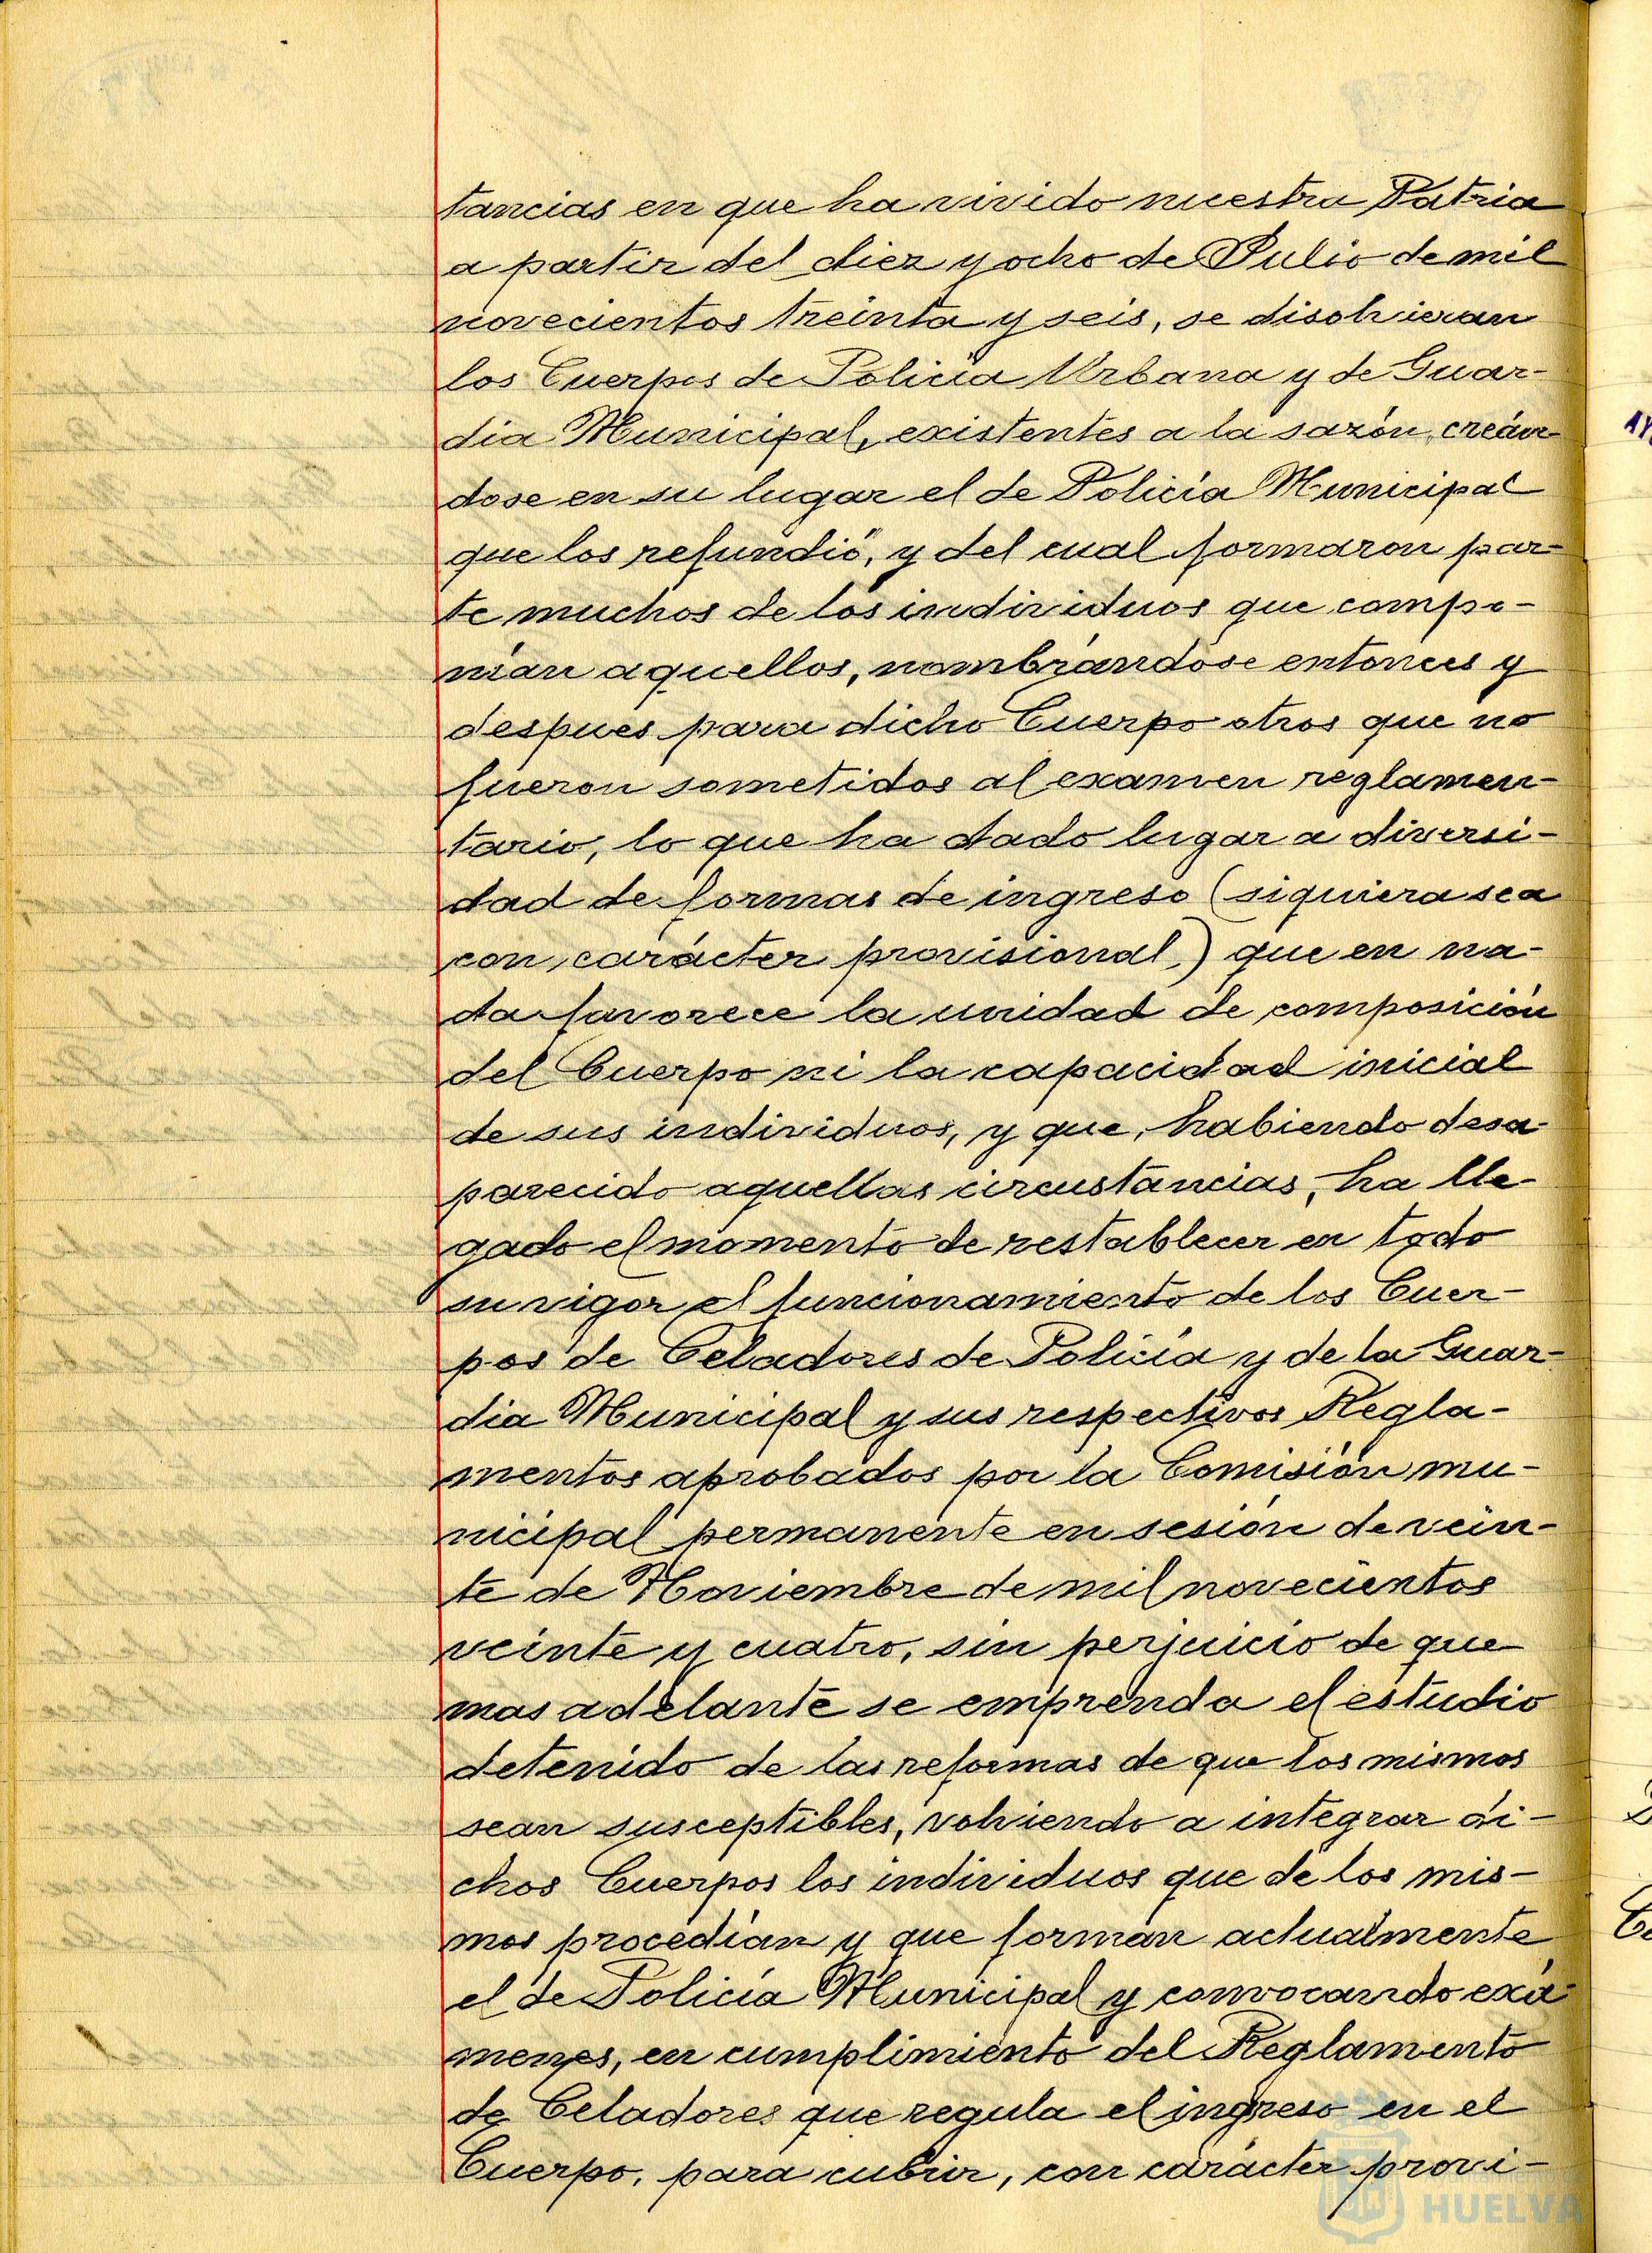 tancias en que ha vivido nuestra Patria
a partir del diez y ocho de Julio de mil
novecientos treinta y seis, se disolvieran
los Cuerpos de Policía Urbana y de Guar-
dia Municipal, existentes a la sazón, creán-
dose en su lugar el de Policía Municipal
que los refundió, y del cual formaron par-
te muchos de los individuos que compo-
nían aquellos, nombrándose entonces y
despues para dicho Cuerpo otros que no
fueron sometidos al examen reglamen-
tario, lo que ha dado lugar a diversi-
dad de formas de ingreso (siquiera sea
con carácter provisional) que en na-
da favorece la unidad de composición
del Cuerpo ni la capacidad inicial
de sus individuos, y que, habiendo desa-
parecido aquellas circustancias, ha lle-
gado el momento de restablecer en todo
su vigor el funcionamiento de los Cuer-
pos de Celadores de Policía y de la Guar-
dia Municipal y sus respectivos Regla-
mentos aprobados por la Comisión mu-
nicipal permanente en sesión de vein-
te de Noviembre de mil novecientos
veinte y cuatro, sin perjuicio de que
mas adelante se emprenda el estudio
detenido de las reformas de que los mismos
sean susceptibles, volviendo a integrar di-
chos Cuerpos los individuos que de los mis-
mos procedían y que forman actualmente
el de Policía Municipal y convocando exá-
menes, en cumplimiento del Reglamento
de Celadores que regula el ingreso en el
Cuerpo, para cubrir, con carácter provi-
HUELVA